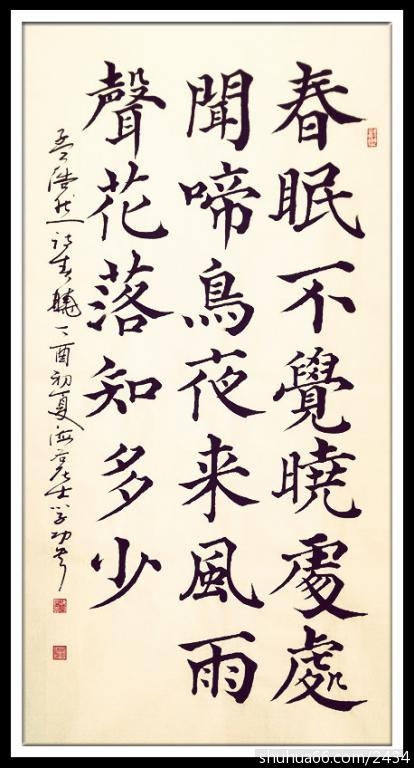 春眠不覺曉處處
聞啼鳥夜来風雨
聲花落知多少
孟浩然詩春曉丁酉初夏
shuhua66.com/2434